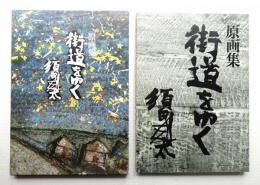 街道をゆく
須田剋太
原画集
街道をゆく
須田剋太